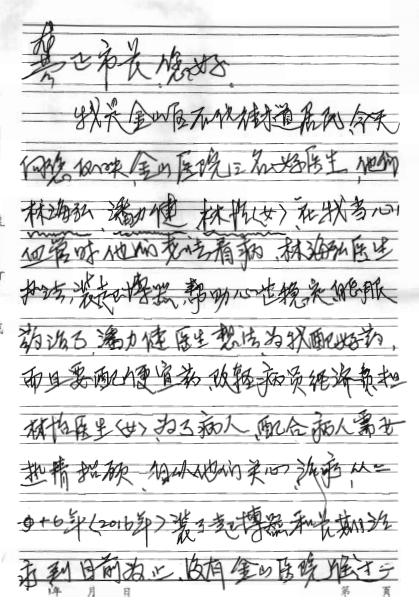 龚正市长，您好。
我是金山区石化街道居民，今天
向您反映，金山医院三名好医生，他们
林海弘，潘力健，林怡（女）在我当心
血管时他们想法看病，林海弘医生
想法，装起博器，帮助心也稳定能服
药治了，潘力健医生想法为我配好药，
而且要配便宜药，改轻病员经济负担
林怡医生（女）为了病人，配合病人需要
热情招顾，但从他们关心，治疗，从二
0十6年（2016年）装了起博器和长期治
疗到目前为止，没有金山医院
年 月 日 第 页